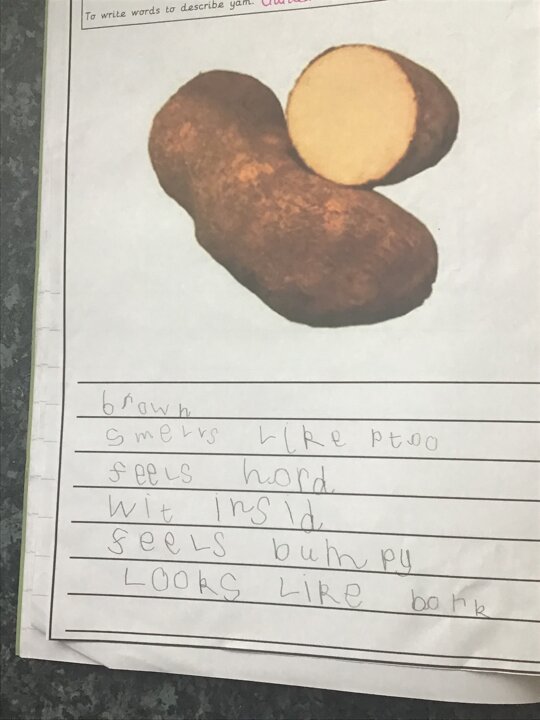 To write words to describe yam.
brown
smells like ptoo
feels hord
wit insid
feeLs bumpy
LOOKS LiKE bork